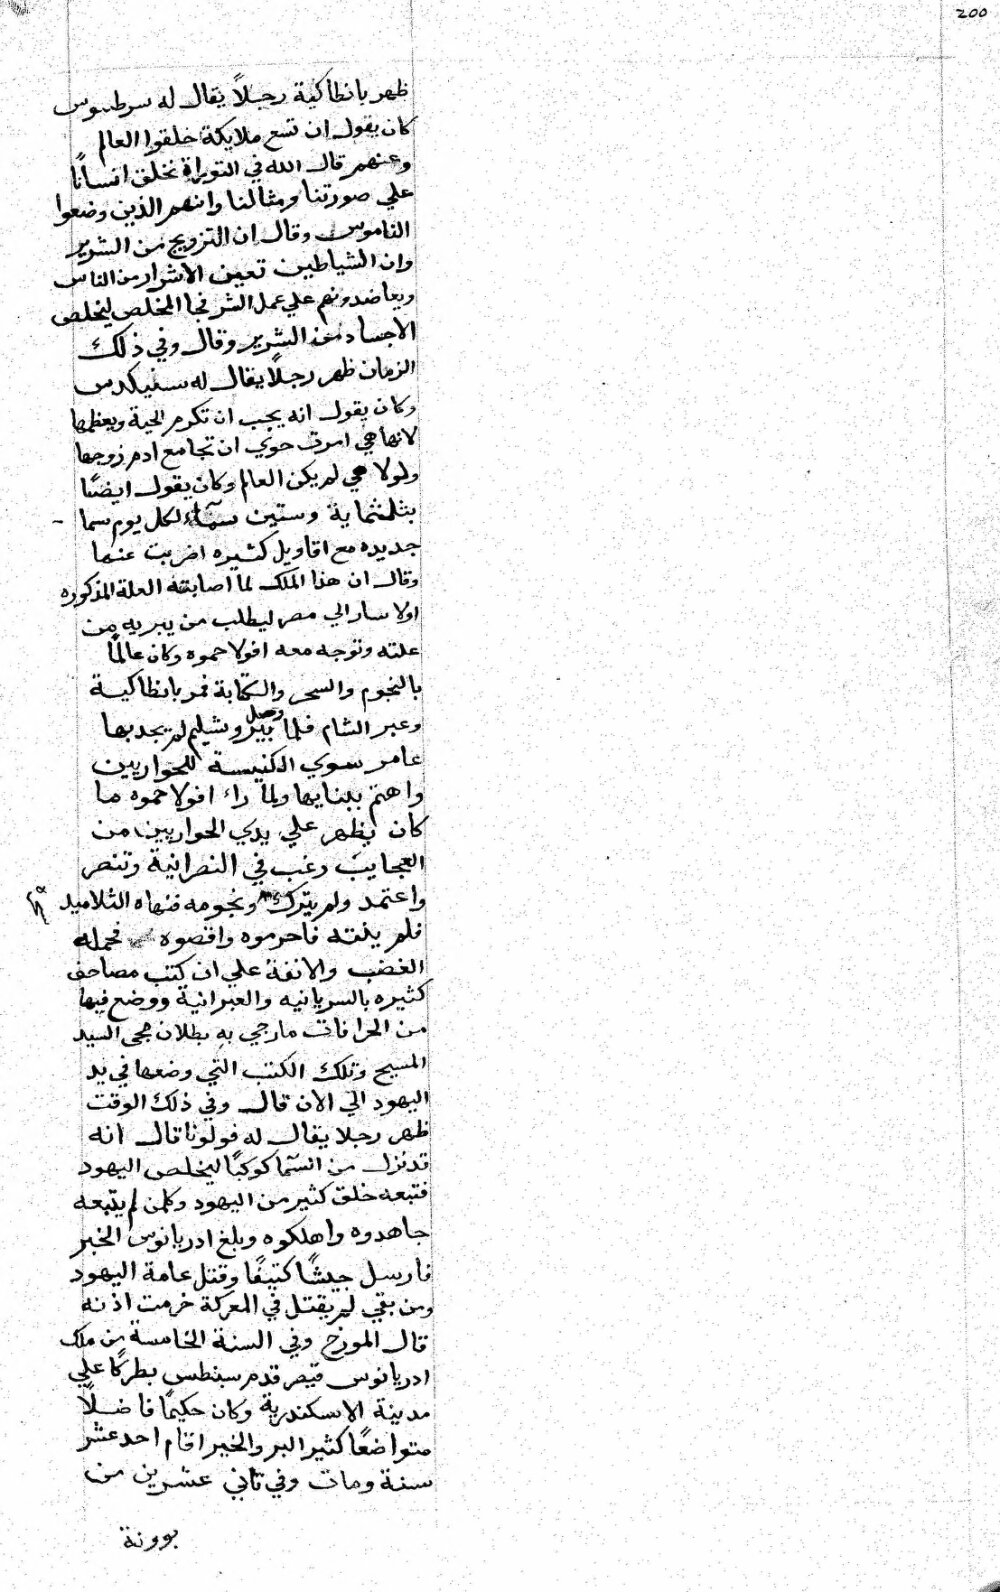 200
ظهر بانطاكية رجلاً يقال له سرطبوس
كان يقول ان تسع ملايكة خلقوا العالم
وعنهم قال الله في التوراة نخلق انسانًا
علي صورتنا ومثالنا وانهم الذين وضعوا
الناموس وقال ان التزويج من الشرير
وان الشياطين تعين الاشرار من الناس
ويعاضدونهم علي عمل الشر فجا المخلص ليخلص
الاجساد من الشرير وقال وفي ذلك
الزمان ظهر رجلاً يقال له سفيكدس
وكان يقول انه يجب ان تكرم الحية ويعظمها
لانها هي امرت حوي ان تجامع ادم زوجها
ولولا هي لم يكن العالم وكان يقول ايضًا
بثلثماية وستين سمآء لكل يوم سما
جديده مع اقاويل كثيره اضربت عنها
وقال ان هذا الملك لما اصابته العلة المذكوره
اولا سار الي مصر ليطلب من يبريه من
علته وتوجه معه اقولا حموه وكان عالمًا
بالنجوم والسحر والكتابة فمر بانطاكية
وعبر الشام فلما وصل بيروشليم لم يجد بها
عامر سوي الكنيسة للحواريين
واهتم ببنايها ولما راء اقولا حموه ما
كان يظهر علي يدي الحواريين من
العجايب رغب في النصرانية وتنصر
واعتمد ولم يترك ونجومه فنهاه التلاميد
فلم ينته فاحرموه واقصوه فحمله
الغضب والانفة علي ان كتب مصاحف
كثيره بالسريانيه والعبرانية ووضع فيها
من الخرافات ما رجي به بطلان مجي السيد
المسيح وتلك الكتب التي وضعها في يد
اليهود الي الان قال وفي ذلك الوقت
ظهر رجلا يقال له فولونا قال انه
قد نزل من السما كوكبًا ليخلص اليهود
فتبعه خلق كثير من اليهود وكلمن لم يتبعه
جاهدوه واهلكوه وبلغ ادريانوس الخبر
فارسل جيشًا كثيفًا وقتل عامة اليهود
ومن بقي لم يقتل في المعركة خرمت اذنه
قال المورخ وفي السنة الخامسة من ملك
ادريانوس قيصر قدم سبنطس بطركًا علي
مدينة الاسكندرية وكان حكيمًا فاضلاً
متواضعًا كثير البر والخير اقام احد عشر
سنة ومات وفي ثاني عشرين من
بوونة